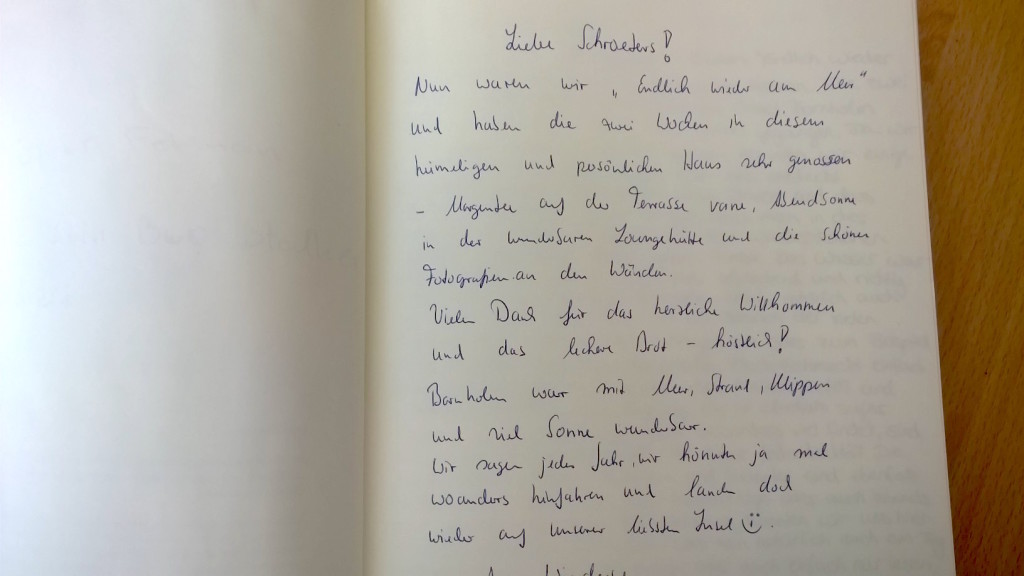 Liebe Schroeders!
Nun waren wir „Endlich wieder am Meer"
und haben die zwei Wochen in diesem
heimeligen und persönlichen Haus sehr genossen
– Morgentee auf der Terrasse vorne, Abendsonne
in der wunderbaren Loungehütte und die schönen
Fotografien an den Wänden.
Vielen Dank für das herzliche Willkommen
und das leckere Brot – köstlich!
Bornholm war mit Meer, Strand, Klippen
und viel Sonne wunderbar.
Wir sagen jedes Jahr, wir könnten ja mal
woanders hinfahren und landen doch
wieder auf unserer liebsten Insel.